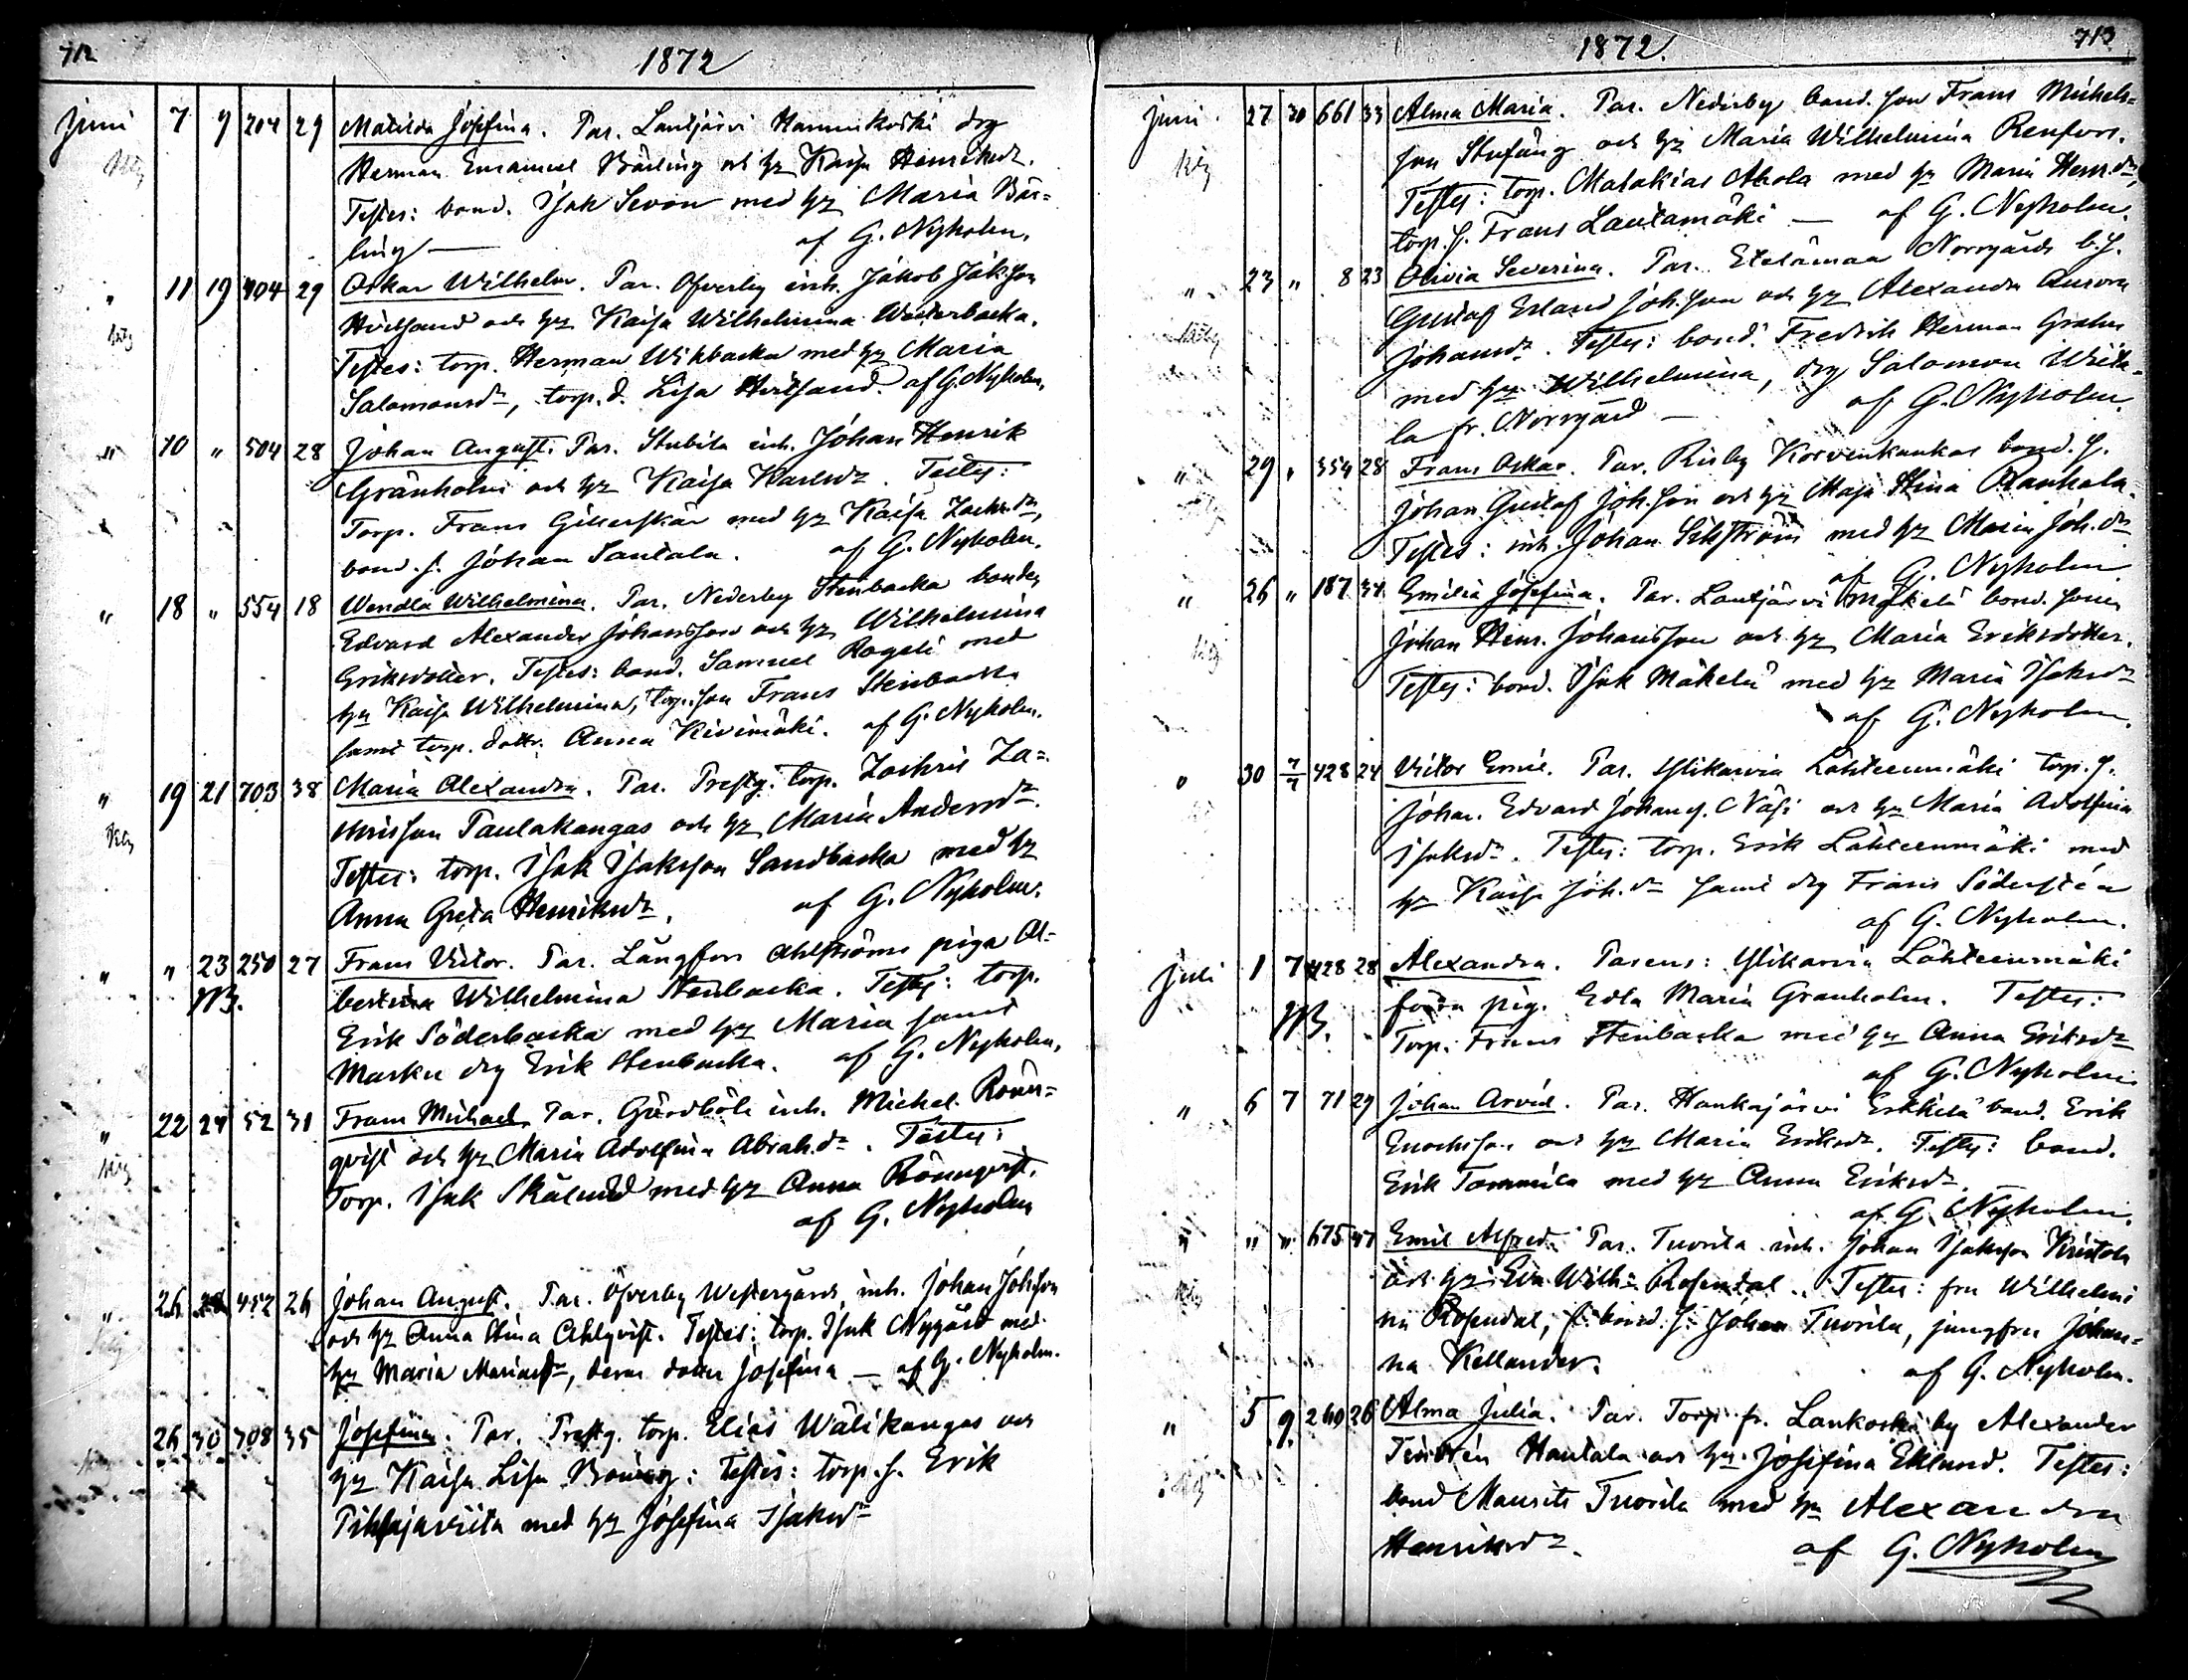 712
1872
Juni 7 9 204 29 Matilda Josefina. Par. Lautjärvi Hannukoski drg
Herman Emanuel Bärling och hu Kaisa Henriksdr.
Testes: bond. Isak Sevon med hu Maria Bär=
ling — af G. Nyholm.
" 11 19 404 29 Oskar Wilhelm. Par. Öfverby inh. Jakob Jakson
Hvitsand och hu Kaisa Wilhelmina Westerbacka.
Testes: torp. Herman Wikbacka med hu Maria
Salomonsdr, torp. d. Lisa Hvitsand. af G. Nyholm.
" 10 " 504 28 Johan August. Par. Stubila inh. Johan Henrik
Granholm och hu Kaisa Karlsdr. Testes:
Torp. Frans Gillerskär med hu Kaisa Zachrdr,
bond. s. Johan Santala. af G. Nyholm.
" 18 " 554 18 Wendla Wilhelmina. Par. Nederby Stenbacka bonden
Edvard Alexander Johansson och hu Wilhelmina
Eriksdotter. Testes: bond. Samuel Rogeli med
hu Kaisa Wilhelmina, torp. son Frans Stenbacka
samt torp. dottr. Anna Kivimäki. af G. Nyholm.
" 19 21 703 38 Maria Alexandra. Par. Prestg. torp. Zachris Za=
chrisson Paulakangas och hu Maria Andersdr.
Testes: torp. Isak Isaksson Sandbacka med hu
Anna Greta Henriksdr. af G. Nyholm.
" " 23 250 27 Frans Victor. Par. Långfors Ahlströms piga Al=
NB. bertina Wilhelmina Stenbacka. Testes: torp.
Erik Söderbacka med hu Maria samt
Marku drg Erik Stenbacka. af G. Nyholm.
" 22 24 52 31 Frans Michael. Par. Gårdböle inh. Michel Rönn=
qvist och hu Maria Adolfina Abrah.dr. Testes:
Torp. Isak Skälund med hu Anna Rönnqvist.
af G. Nyholm
" 26 452 26 Johan August. Par. Öfverby Westergårds inh. Johan Johsson
och hu Anna Stina Ahlqvist. Testes: torp. Isak Nygård med
hu Maria, deras dotter Josefina — af G. Nyholm.
26 30 708 35 Josefina. Par. Prestg. torp. Elias Wälikangas och
hu Kaisa Lisa. Testes: torp. s. Erik
med hu Josefina Isaksdr
713
1872.
Juni 27 30 661 33 Alma Maria. Par. Nederby bond. son Frans Michels=
son Stufäng och hu Maria Wilhelmina Renfors.
Testes: torp. Malakias Ahola med hu Maria Henr.dr,
torp. s. Frans Lautamäki — af G. Nyholm.
" 23 " 8 23 Olivia Severina. Par. Etelämaa Norrgårds b. s.
Gustaf Erland Joh.son och hu Alexandra Aurora
Johansdr. Testes: bond. Fredrik Herman Grahn
med hu Wilhelmina, drg Salomon Wiita=
la fr. Norrgård — af G. Nyholm.
" 29 " 354 28 Frans Oskar. Par. Risby Korvenkankas bond. s.
Johan Gustaf Joh.son och hu Maja Stina Rauhala.
Testes: inh. Johan med hu Maria Joh.dr
af G. Nyholm
" 26 " 187 34 Emilia Josefina. Par. Lautjärvi Mäkelä bond. sonen
Johan Henr. Johansson och hu Maria Eriksdotter.
Testes: bond. Isak Mäkelä med hu Maria Isaksdr
af G. Nyholm.
" 30 7/7 428 24 Victor Emil. Par. Ylikarvia Lähteenmäki torp. s.
Johan Edvard Johans. Näsi och hu Maria Adolfina
Isaksdr. Testes: torp. Erik Lähteenmäki med
hu Kaisa Joh.dr samt drg Frans Söderstén
af G. Nyholm.
Juli 1 7 428 28 Alexandra. Parens: Ylikarvia Lähteenmäki
NB. förra pig. Edla Maria Granholm. Testes:
Torp. Frans Stenbacka med hu Anna Eriksdr
af G. Nyholm.
" 6 7 71 29 Johan Arvid. Par. Honkajärvi Erkkilä bond. Erik
Enochsson och hu Maria Eriksdr. Testes: bond.
Erik Tommila med hu Anna Eriksdr.
af G. Nyholm.
" " " 675 41 Emil Alfred. Par. Tuorila inh. Johan Isaksson
och hu Eva Wilh:a Rosendal. Testes: fru Wilhelmi
na Rosendal, bond. s. Johan Tuorila, jungfru Johan=
na Kellander. af G. Nyholm.
" 5 9 260 26 Alma Julia. Par. Torp. fr. Lankoski by Alexander
Hautala och hu Josefina Eklund. Testes:
bond Maurits Tuorila med hu Alexandra
Henriksdr. af G. Nyholm